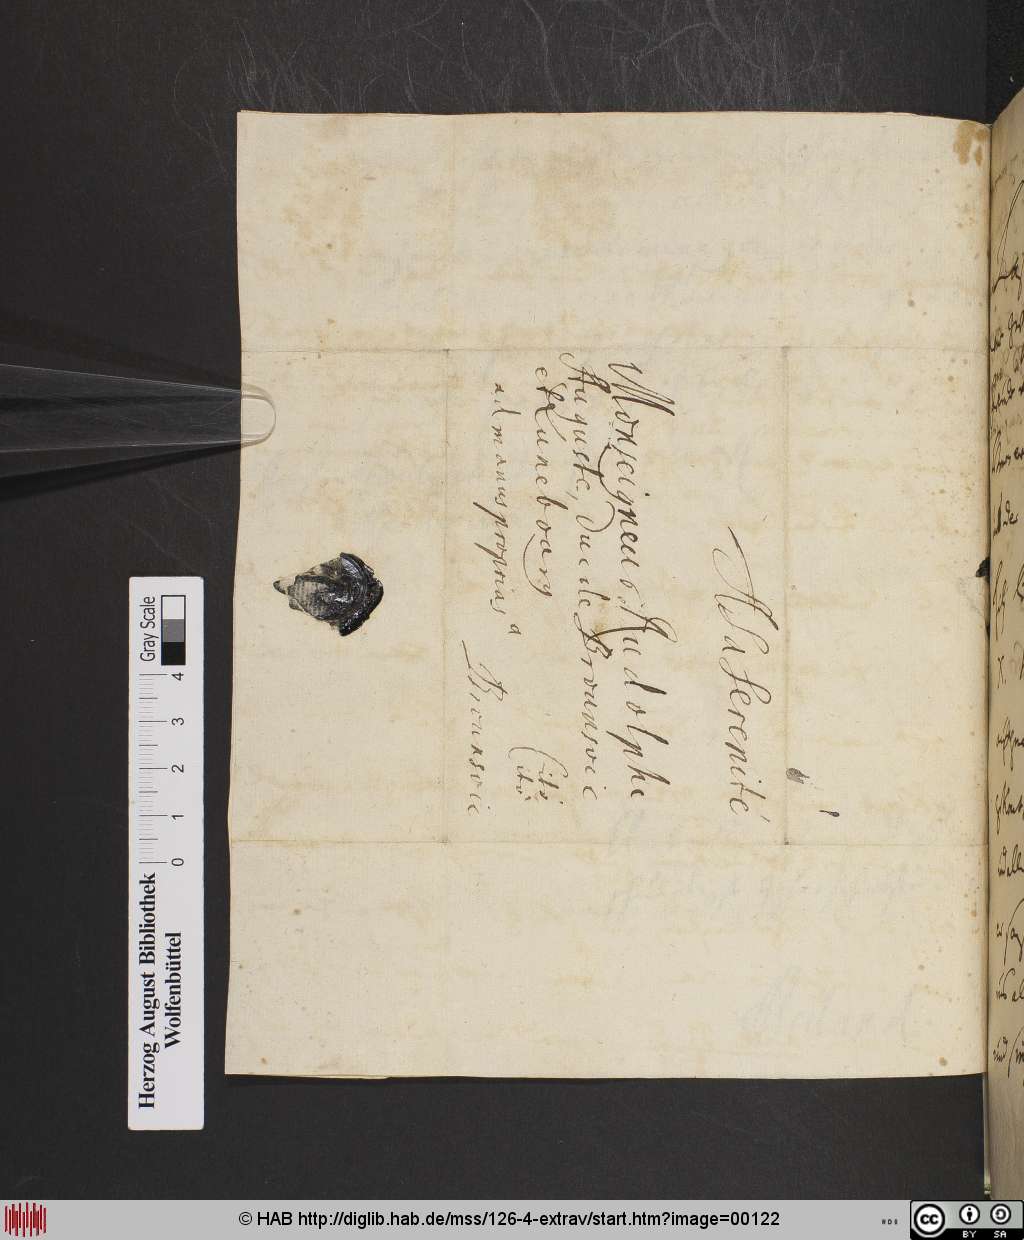 A Sa Serenité
Monseigneur Rudolphe
Auguste, Duc de Brounsvic
et Lunebourg
ad manus proprias
Cito
Cito
a
Brounsvic
Herzog August Bibliothek
Wolfenbüttel
0 1 2 3 4
Gray Scale
© HAB http://diglib.hab.de/mss/126-4-extrav/start.htm?image=00122
cc BY SA